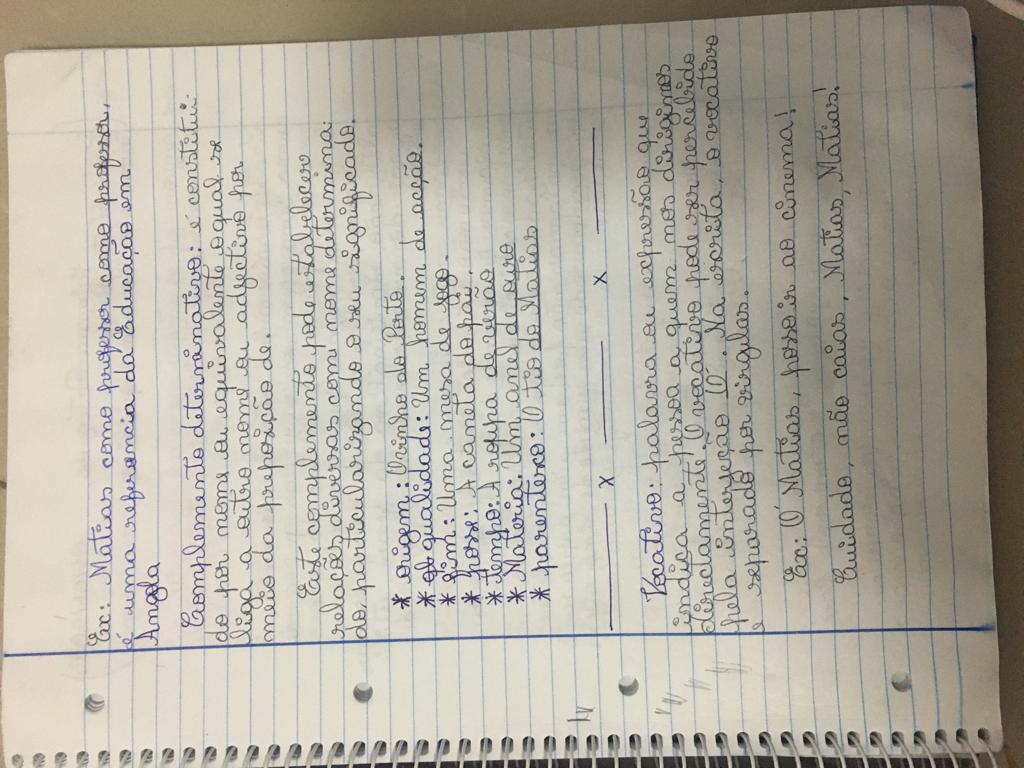 Ex: Matias como professor como professor,
é uma referencia da Educação em
Angola
Complemento determinativo: é constitui-
do por nome ou equivalente o qual se
liga a outro nome ou adjectivo por
meio da preposição de.
Este complemento pode estabelecer
relações diversas com nome determina-
do, particularizando o seu significado.
* origem: O vinho do Porto.
* qualidade: Um homem de acção.
* fim: Uma mesa de jogo.
* posse: A caneta do pai.
* tempo: A roupa de verão
* Materia: Um anel de ouro
* parentesco: O tio do Matias
x x
Vocativo: palavra ou expressão que
indica a pessoa a quem nos dirigimos
directamente. O vocativo pode ser percebido
pela interjeção Ó. Na escrita, o vocativo
é separado por virgulas.
Ex: Ó Matias, posso ir ao cinema!
Cuidado, não caias, Matias, Matias!